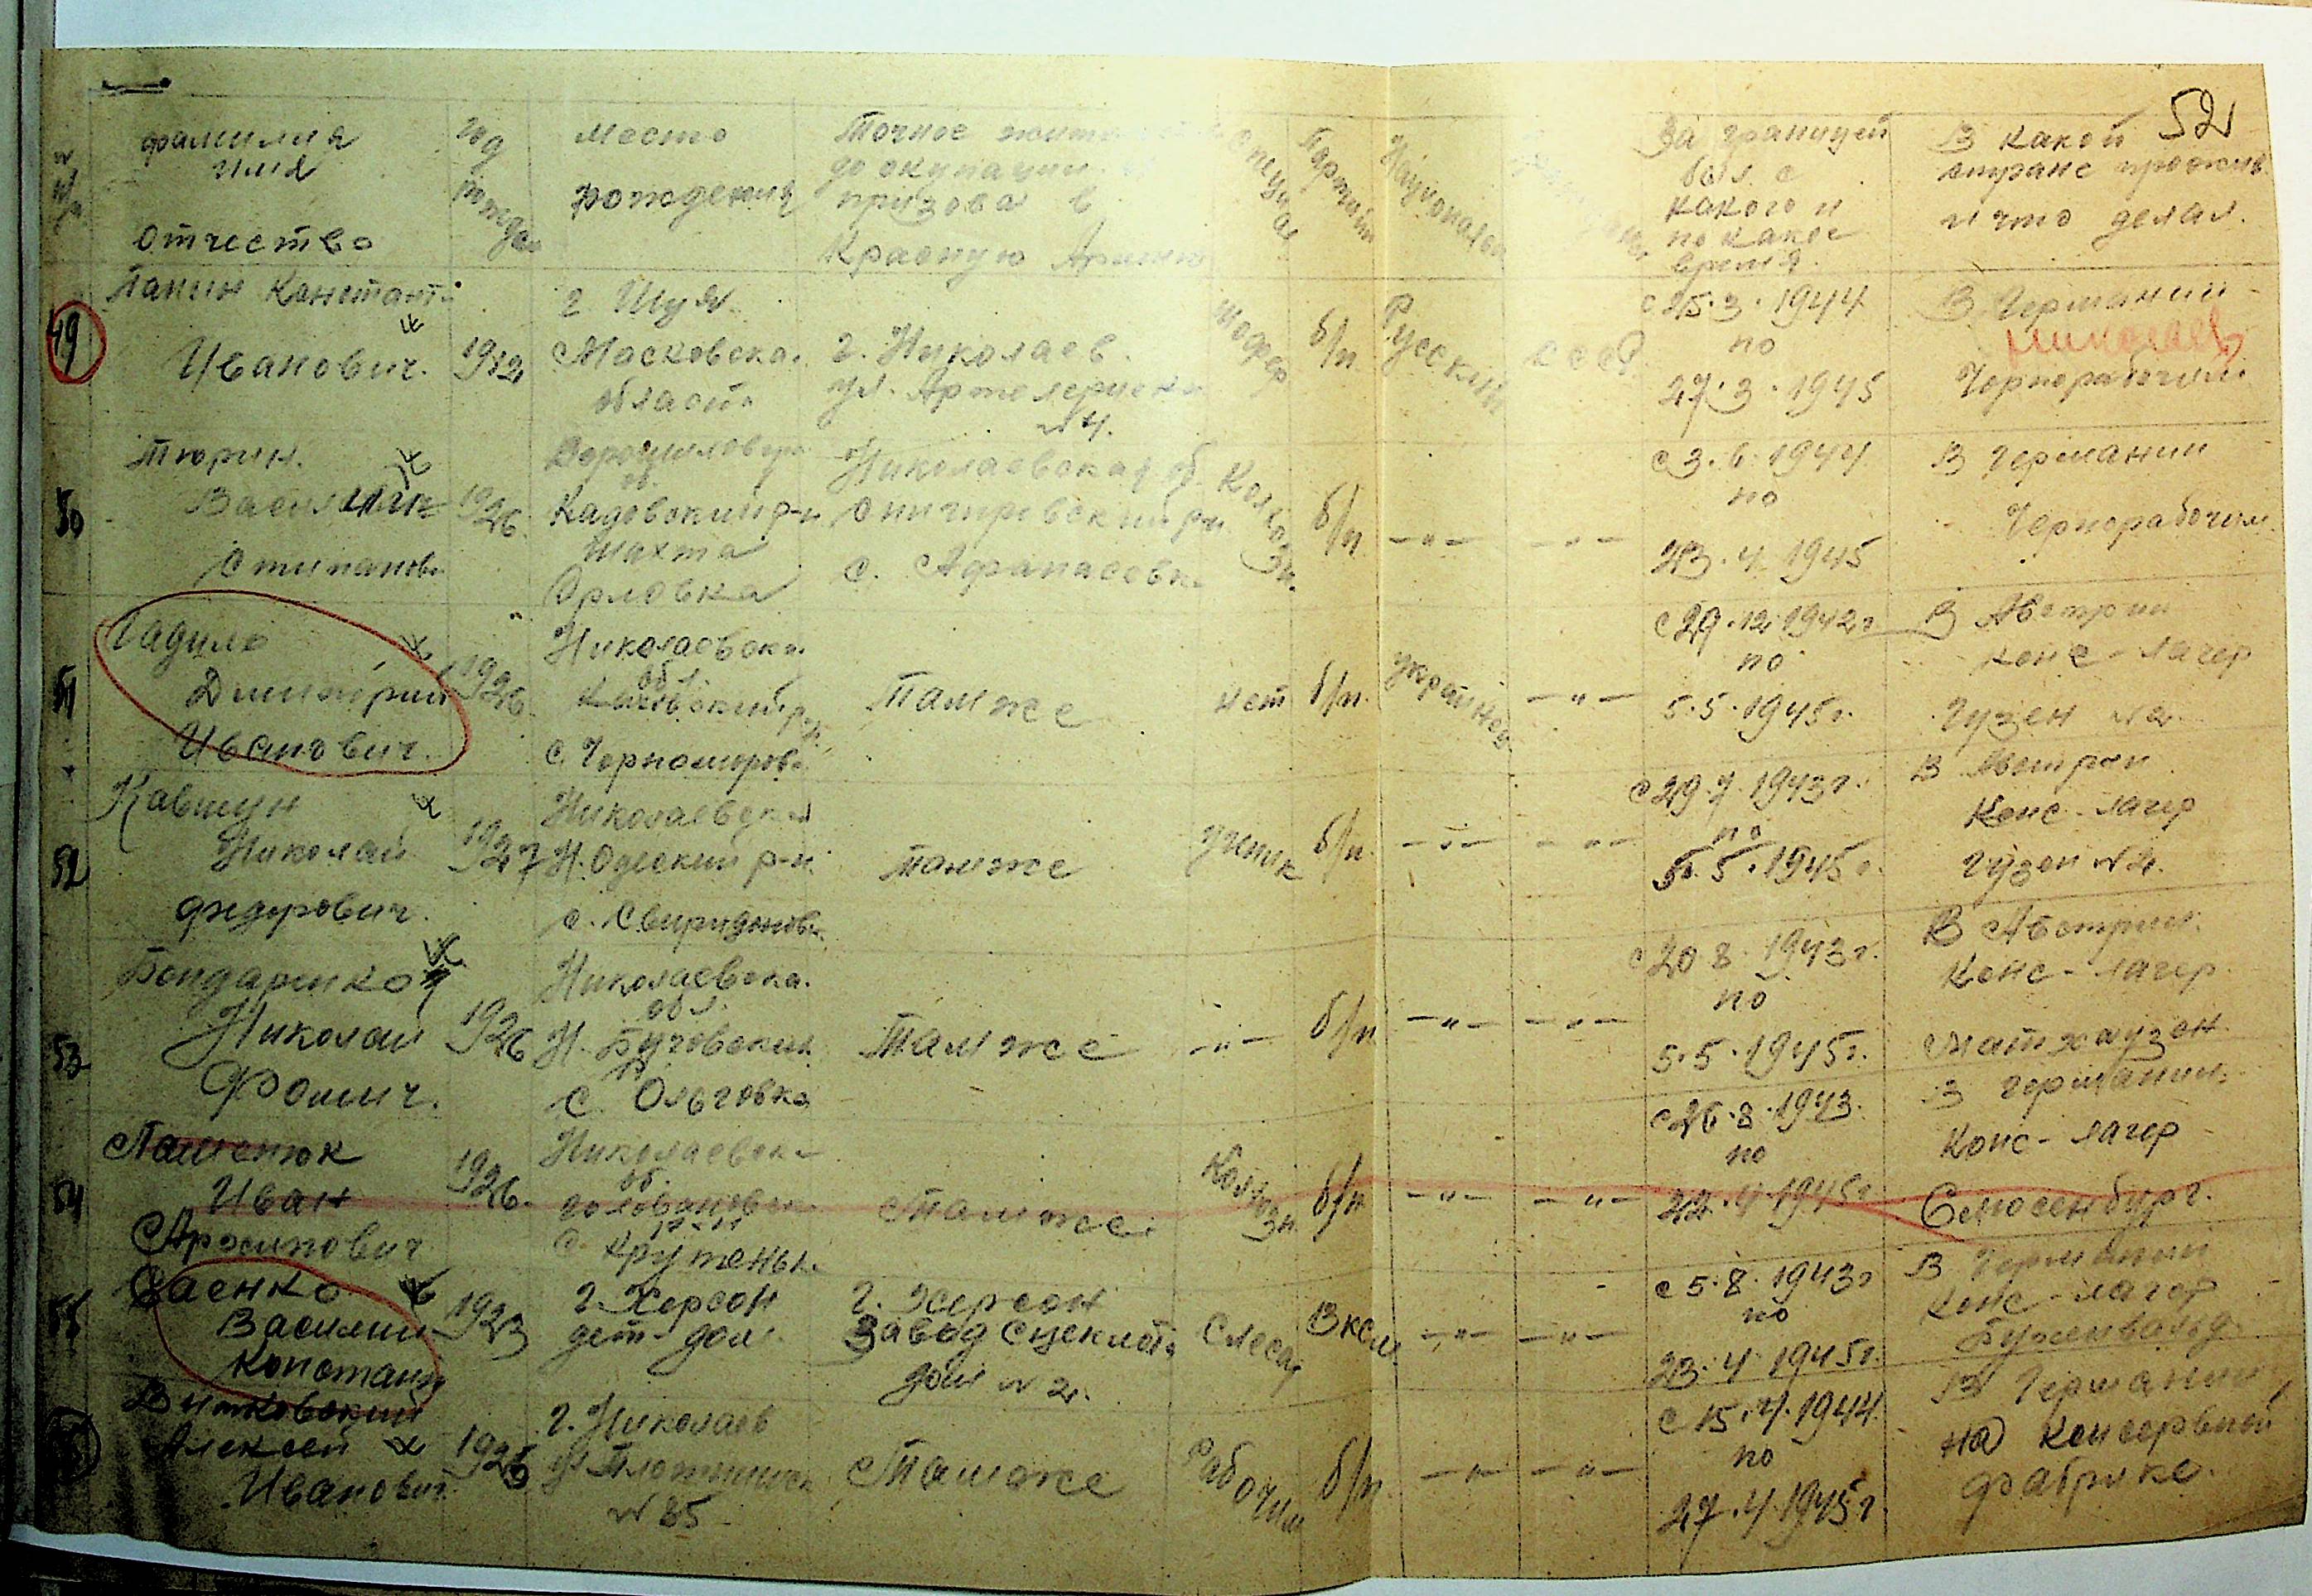 52
N п/п
фамилия
имя
отчество
год
рожден
место
рождения
Точное жит
до окупации
призова в
Красную Арми
Партийн
Национальн
За границей
был с
какого и
по какое
время
В какой
стране прожив.
и что делал.
49
Папин Констант
Иванович.
1912
г Шуя
Московска.
област.
г. Николаев.
ул. Артелериска
N 4.
шофер
б/п
Русский
СССР
с 25.3.1944
по
27.3.1945
В Германии
Николаев
Чернорабочим
50
Тюрин.
Василий
Стипанов.
1926.
Ворошиловгр.
об.
Кадовский р-н
шахта
Орловка
Николаевская об.
Снигировский р-н
с. Афанасевк.
Колхозн.
б/п
—"—
—"—
с 3.6.1944
по
23.4.1945
В Германии
Чернорабочим.
51
Гадило
Димитрий
Иванович.
1926.
Николаевска.
обл.
с. Черноморов.
Тамже
нет
б/п.
украинец
—"—
с 29.12.1942г.
по
5.5.1945г.
В Австрии
конс-лагер
Гузен N 2.
52
Кавшун
Николай
Фидорович.
1927
Николаевска
Н. Одеский р-н.
с. Свиридонов.
тамже
ученик
б/п.
—"—
—"—
с 29.7.1943г.
по
5.5.1945г.
В Австрии
Конс-лагер
Гузен N 2.
53
Бондаренко
Николай
Фомич.
1926
Николаевска.
обл.
Н. Бугсвский
с. Ольговка
Тамже
—"—
б/п
—"—
—"—
с 20 8.1943г.
по
5.5.1945г.
В Австрии.
Конс-лагер.
Матхаузен
54
Пашенюк
Иван
Аросипович
1926.
Николаевск.
об.
головановск
р-н
с. Крутеньк.
Тамже.
Колхозн.
б/п
—"—
—"—
с 26.8.1943.
по
22.4.1945г
В Германии.
Конс-лагер
Слюсенбург.
55
Саенко
Василий
Констант
1923
г. Херсон
дет-дом.
г. Херсон
Завод Сцеклот.
дом N 2.
Слесар
Вксм
—"—
—"—
с 5.8.1943г
по
23.4.1945г.
В Германии
Конс-лагер
Бухенвальд.
Витковский
Алексей
Иванович
1926
г. Николаев
N 85
Тамже
Рабочим
б/п.
—"—
—"—
с 15.4.1944.
по
27.4.1945г.
В Германии
на консервной
фабрике.